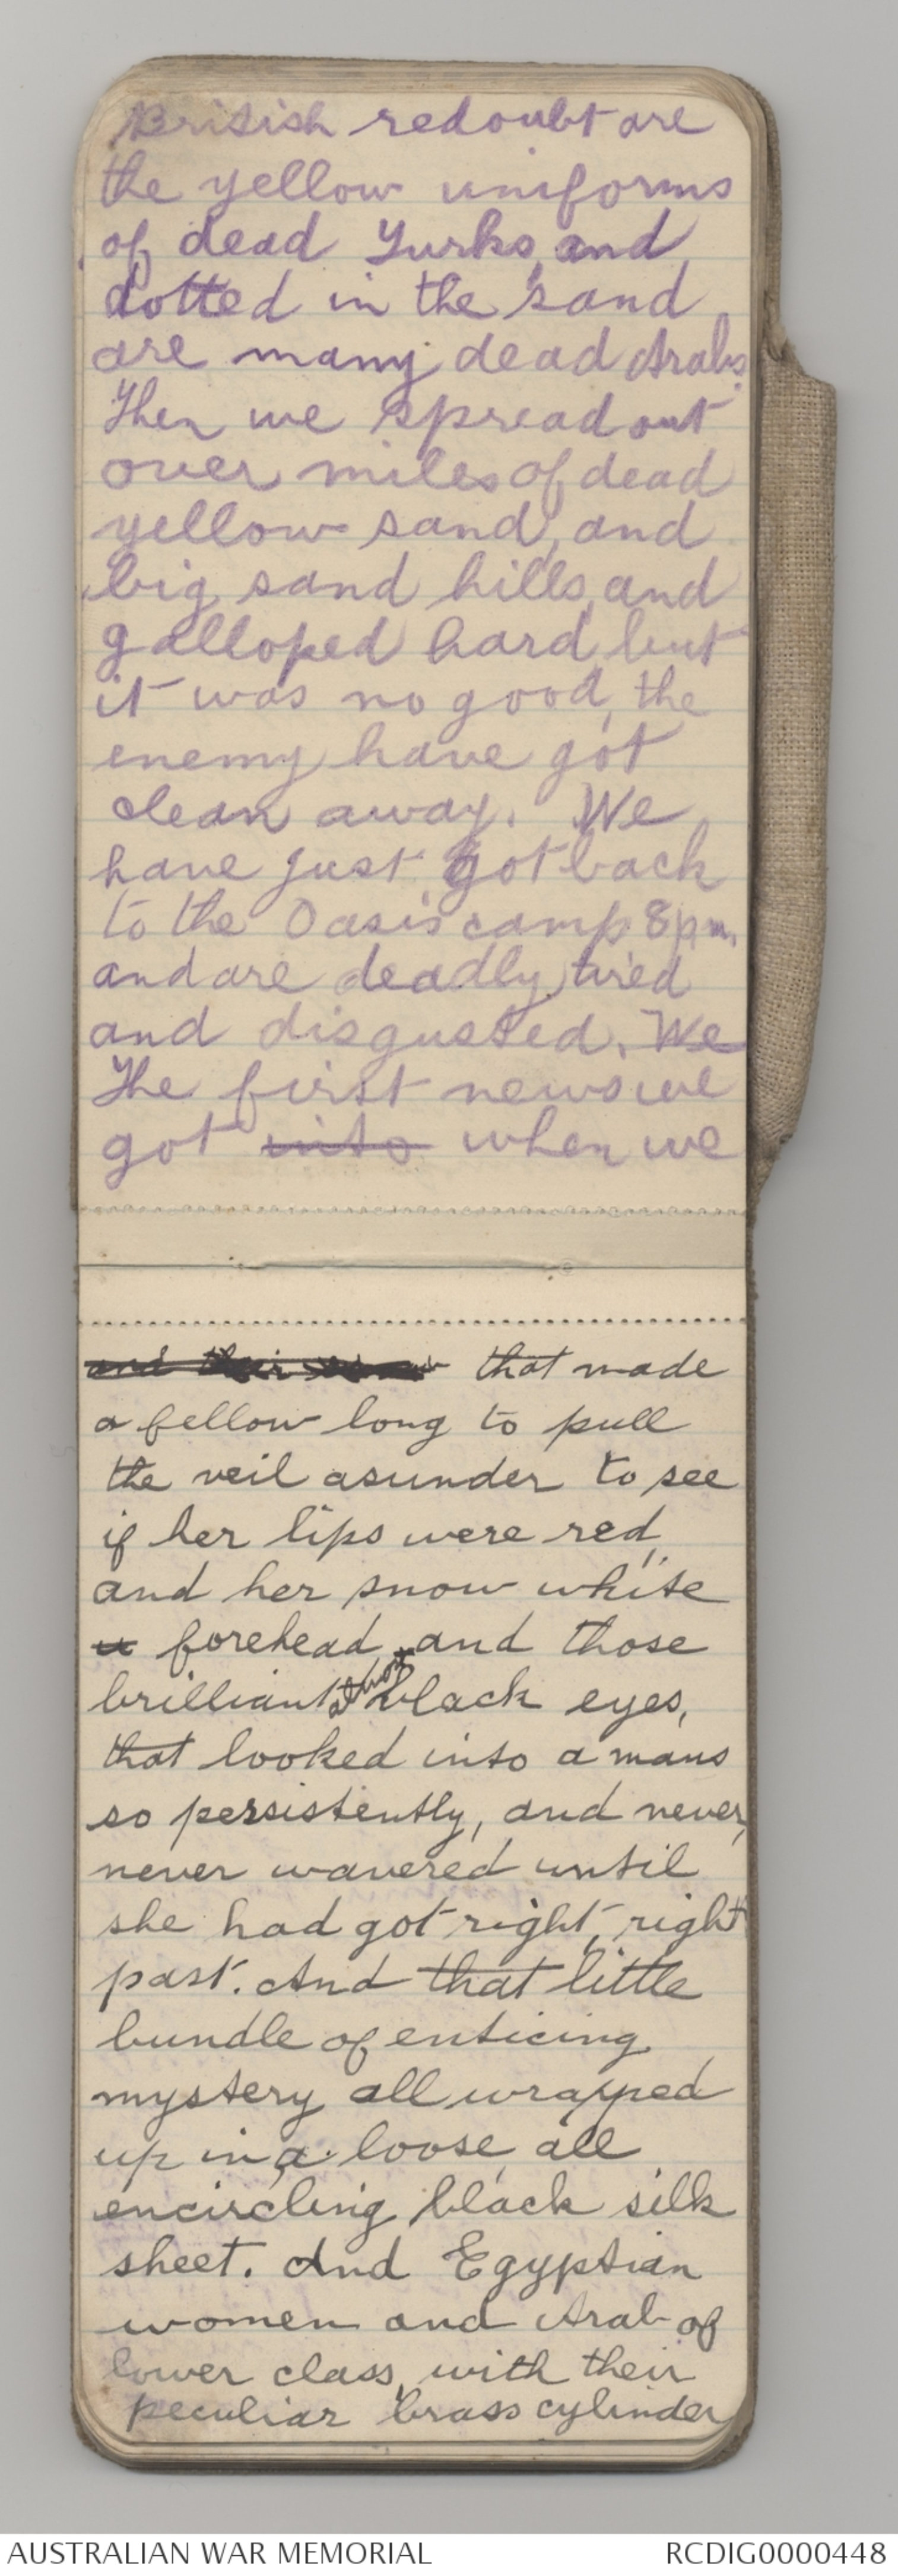 British redoubt are
the yellow uniforms
of dead Turks, and
dotted in the sand
are many dead Arabs.
Then we spread out
over miles of dead
yellow sand, and
big sand hills, and
galloped hard but
it was no good, the
enemy have got
clean away. We
have just got back
to the Oasis camp 8pm.
and are deadly tired
and disgusted. We
The first news we
got into when we
and their that made
a fellow long to pull
the veil asunder to see
if her lips were red,
and her snow white
forehead, and those
brilliant almost black eyes,
that looked into a mans
so persistently, and never,
never wavered until
she had got right, right
past. And that little
bundle of enticing
mystery all wrapped
up in a loose, all
encircling black silk
sheet. And Egyptian
women and Arab of
lower class, with their
peculiar brass cylinder
AUSTRALIAN WAR MEMORIAL
RCDIG0000448